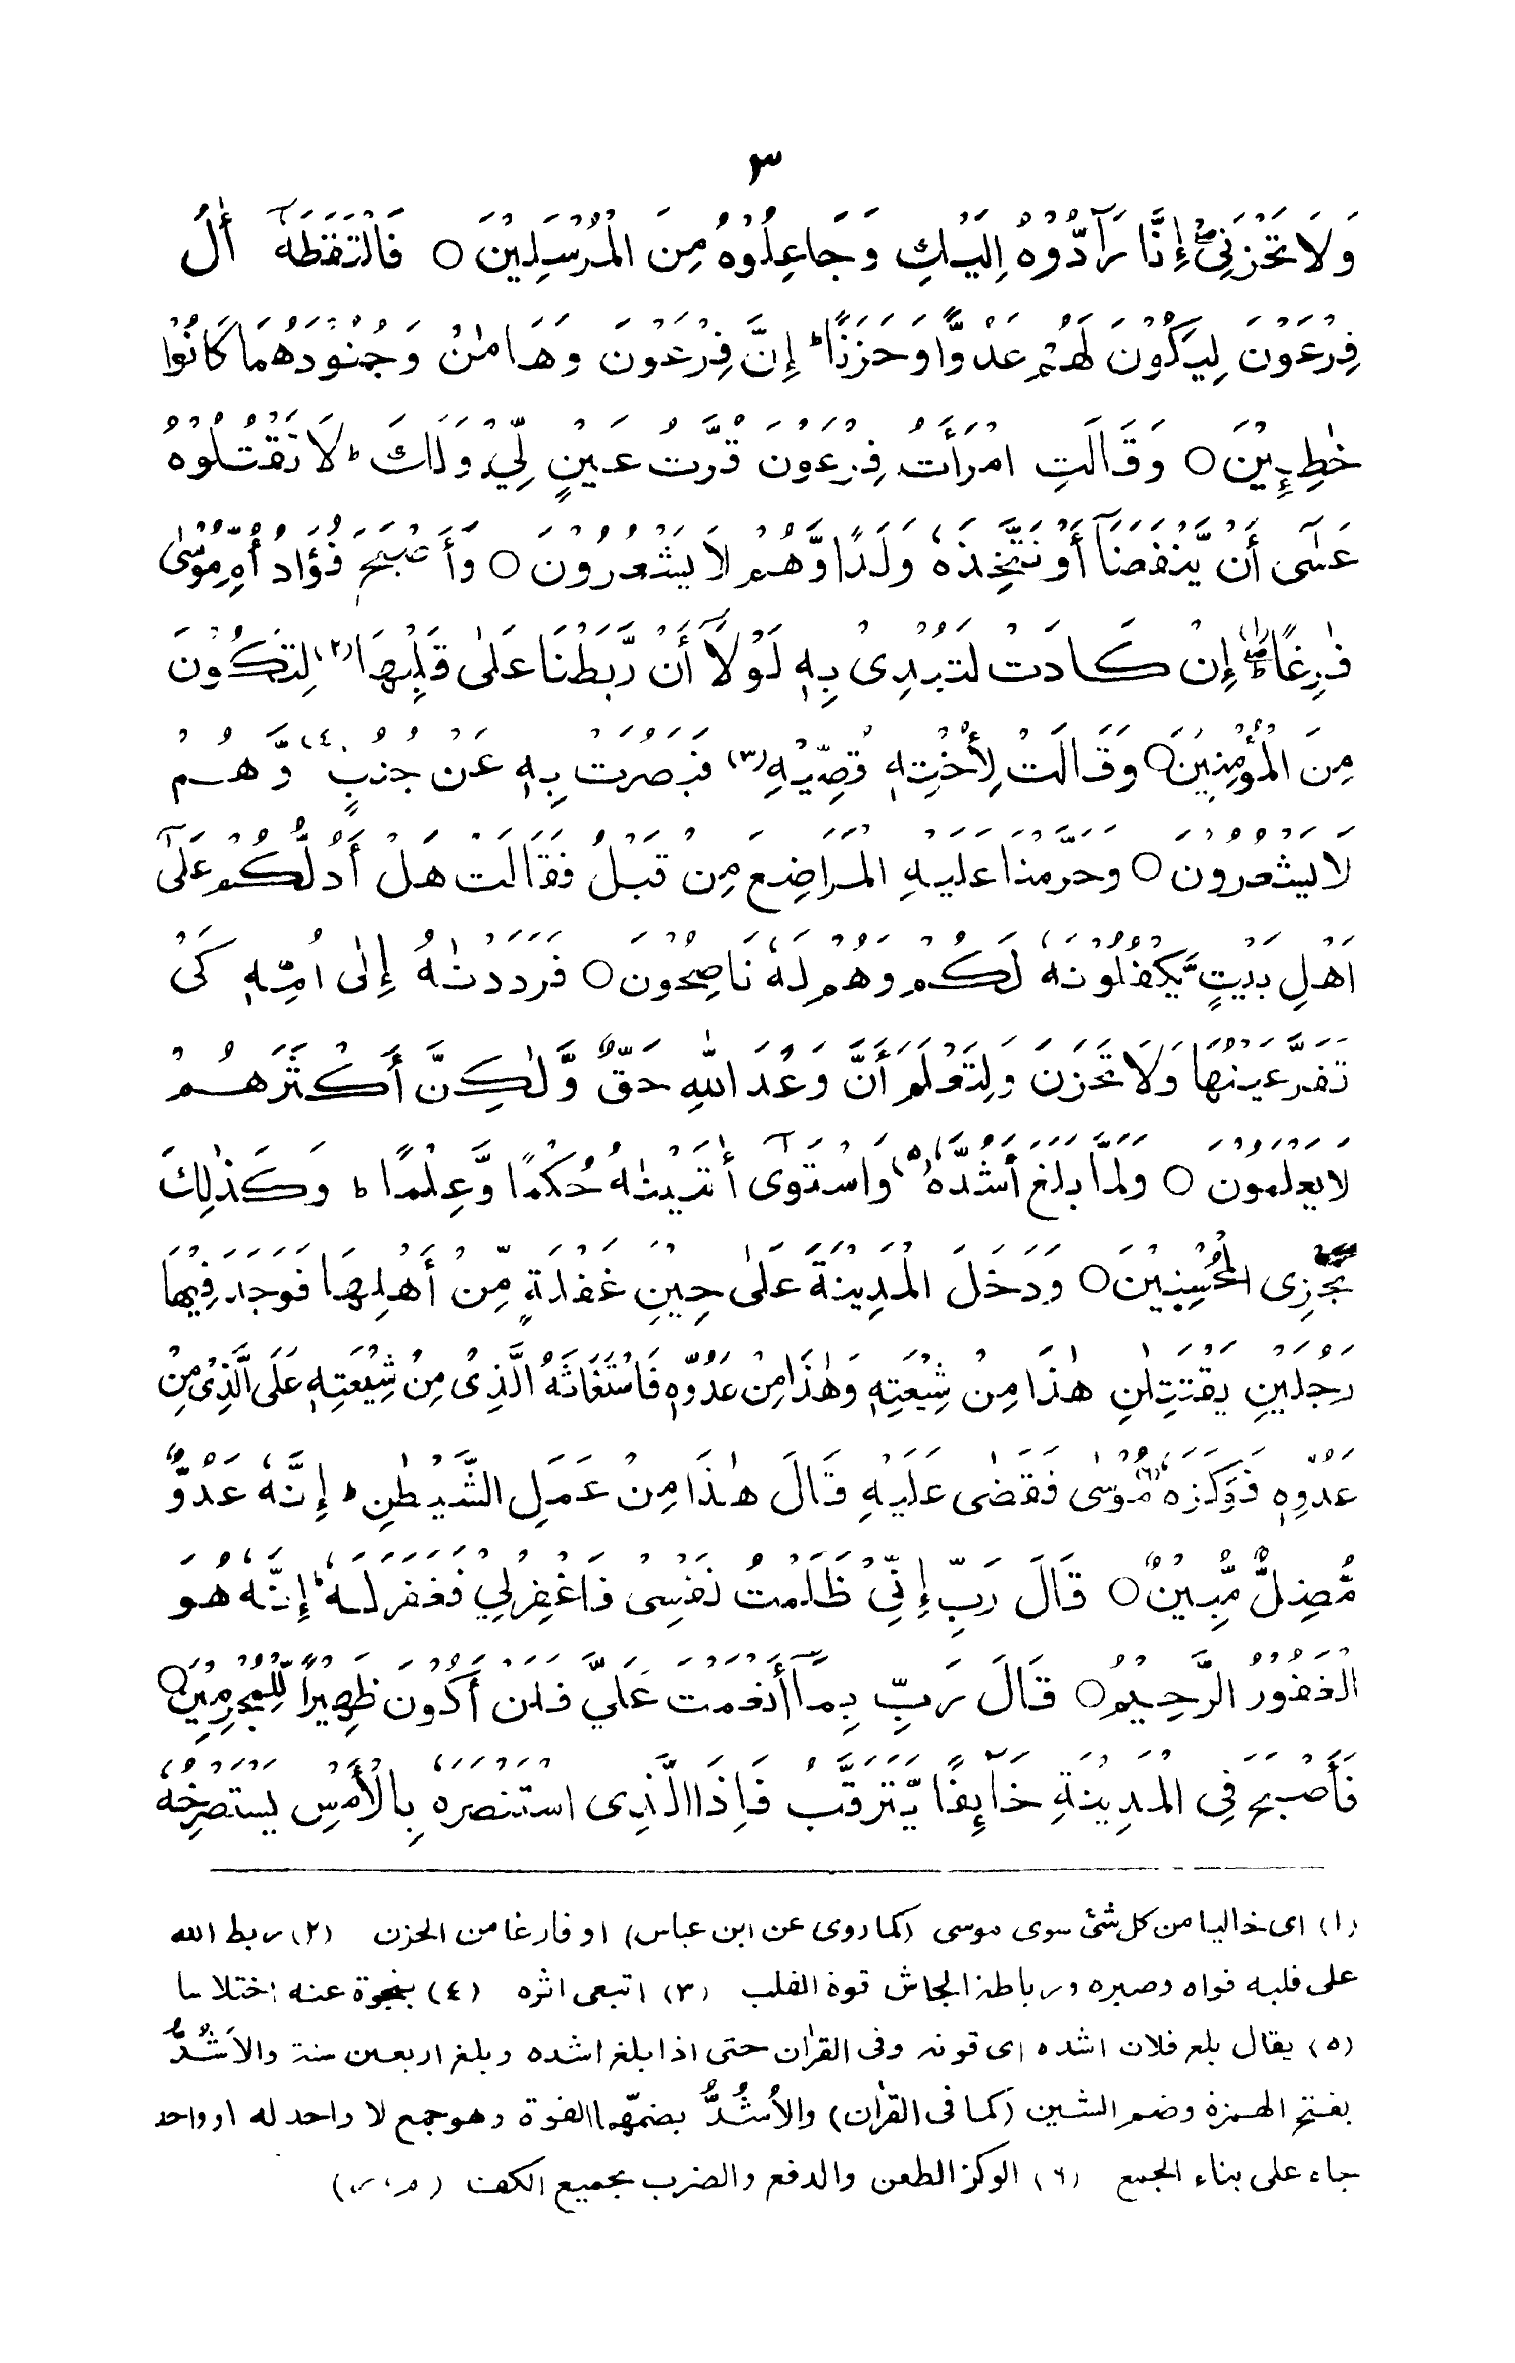 ٣
وَلَا تَحْزَنِيْ ۚ إِنَّا رَآدُّوْهُ اِلَيْكِ وَ جَاعِلُوْهُ مِنَ الْمُرْسَلِيْنَ ○ فَالْتَقَطَهٗٓ أٰلُ
فِرْعَوْنَ لِيَكُوْنَ لَهُمْ عَدْوًّا وَحَزَنًا ؕ إِنَّ فِرْعَوْنَ وَهَامٰنَ وَجُنُوْدَهُمَا كَانُوْا
خٰطِـِٕيْنَ ○ وَقَالَتِ امْرَأَتُ فِرْعَوْنَ قُرَّتُ عَيْنٍ لِّيْ وَلَكَ ؕ لَا تَقْتُلُوْهُ
عَسٰٓى أَنْ يَّنْفَعَنَآ أَوْ نَتَّخِذَهٗ وَلَدًا وَّهُمْ لَا يَشْعُرُوْنَ ○ وَأَصْبَحَ فُؤَادُ أُمِّ مُوْسٰى
فٰرِغًا (١) ؕ إِنْ كَادَتْ لَتُبْدِىْ بِهٖ لَوْلَآ أَنْ رَّبَطْنَا عَلٰى قَلْبِهَا (٢) لِتَكُوْنَ
مِنَ الْمُؤْمِنِيْنَ ○ وَقَالَتْ لِأُخْتِهٖ قُصِّيْهِ (٣) فَبَصُرَتْ بِهٖ عَنْ جُنُبٍ (٤) وَّهُمْ
لَا يَشْعُرُوْنَ ○ وَحَرَّمْنَا عَلَيْهِ الْمَرَاضِعَ مِنْ قَبْلُ فَقَالَتْ هَلْ أَدُلُّكُمْ عَلٰٓى
اَهْلِ بَيْتٍ يَّكْفُلُوْنَهٗ لَكُمْ وَهُمْ لَهٗ نَاصِحُوْنَ ○ فَرَدَدْنٰهُ إِلٰى اُمِّهٖ كَىْ
تَقَرَّ عَيْنُهَا وَلَا تَحْزَنَ وَلِتَعْلَمَ أَنَّ وَعْدَ اللّٰهِ حَقٌّ وَّلٰكِنَّ أَكْثَرَهُمْ
لَا يَعْلَمُوْنَ ○ وَلَمَّا بَلَغَ أَشُدَّهٗ (٥) وَاسْتَوٰٓى أٰتَيْنٰهُ حُكْمًا وَّعِلْمًا ؕ وَكَذٰلِكَ
نَجْزِى الْمُحْسِنِيْنَ ○ وَدَخَلَ الْمَدِيْنَةَ عَلٰى حِيْنِ غَفْلَةٍ مِّنْ أَهْلِهَا فَوَجَدَ فِيْهَا
رَجُلَيْنِ يَقْتَتِلٰنِ هٰذَا مِنْ شِيْعَتِهٖ وَهٰذَا مِنْ عَدُوِّهٖ فَاسْتَغَاثَهُ الَّذِىْ مِنْ شِيْعَتِهٖ عَلَى الَّذِىْ مِنْ
عَدُوِّهٖ فَوَكَزَهٗ (٦) مُوْسٰى فَقَضٰى عَلَيْهِ قَالَ هٰذَا مِنْ عَمَلِ الشَّيْطٰنِ ؕ إِنَّهٗ عَدُوٌّ
مُّضِلٌّ مُّبِيْنٌ ○ قَالَ رَبِّ إِنِّىْ ظَلَمْتُ نَفْسِىْ فَاغْفِرْ لِيْ فَغَفَرَ لَهٗ ؕ إِنَّهٗ هُوَ
الْغَفُوْرُ الرَّحِيْمُ ○ قَالَ رَبِّ بِمَآ أَنْعَمْتَ عَلَيَّ فَلَنْ أَكُوْنَ ظَهِيْرًا لِّلْمُجْرِمِيْنَ ○
فَأَصْبَحَ فِى الْمَدِيْنَةِ خَآئِفًا يَّتَرَقَّبُ فَاِذَا الَّذِى اسْتَنْصَرَهٗ بِالْأَمْسِ يَسْتَصْرِخُهٗ
(١) اى خاليا من كل شئ سوى موسى (كما روى عن ابن عباس) او فارغا من الحزن (٢) ربط الله
على قلبه قواه وصبره ورباطة الجاش قوة القلب (٣) اتبعى اثره (٤) بنجوة عنه اختلاسا
(٥) يقال بلغ فلان اشده اى قوته وفى القراٰن حتى اذا بلغ اشده وبلغ اربعين سنة والاَشُدُّ
بفتح الهمزة وضم الشين (كما فى القراٰن) والأُشُدُّ بضمّهما القوة وهو جمع لا واحد له او واحد
جاء على بناء الجمع (٦) الوكز الطعن والدفع والضرب بجميع الكف